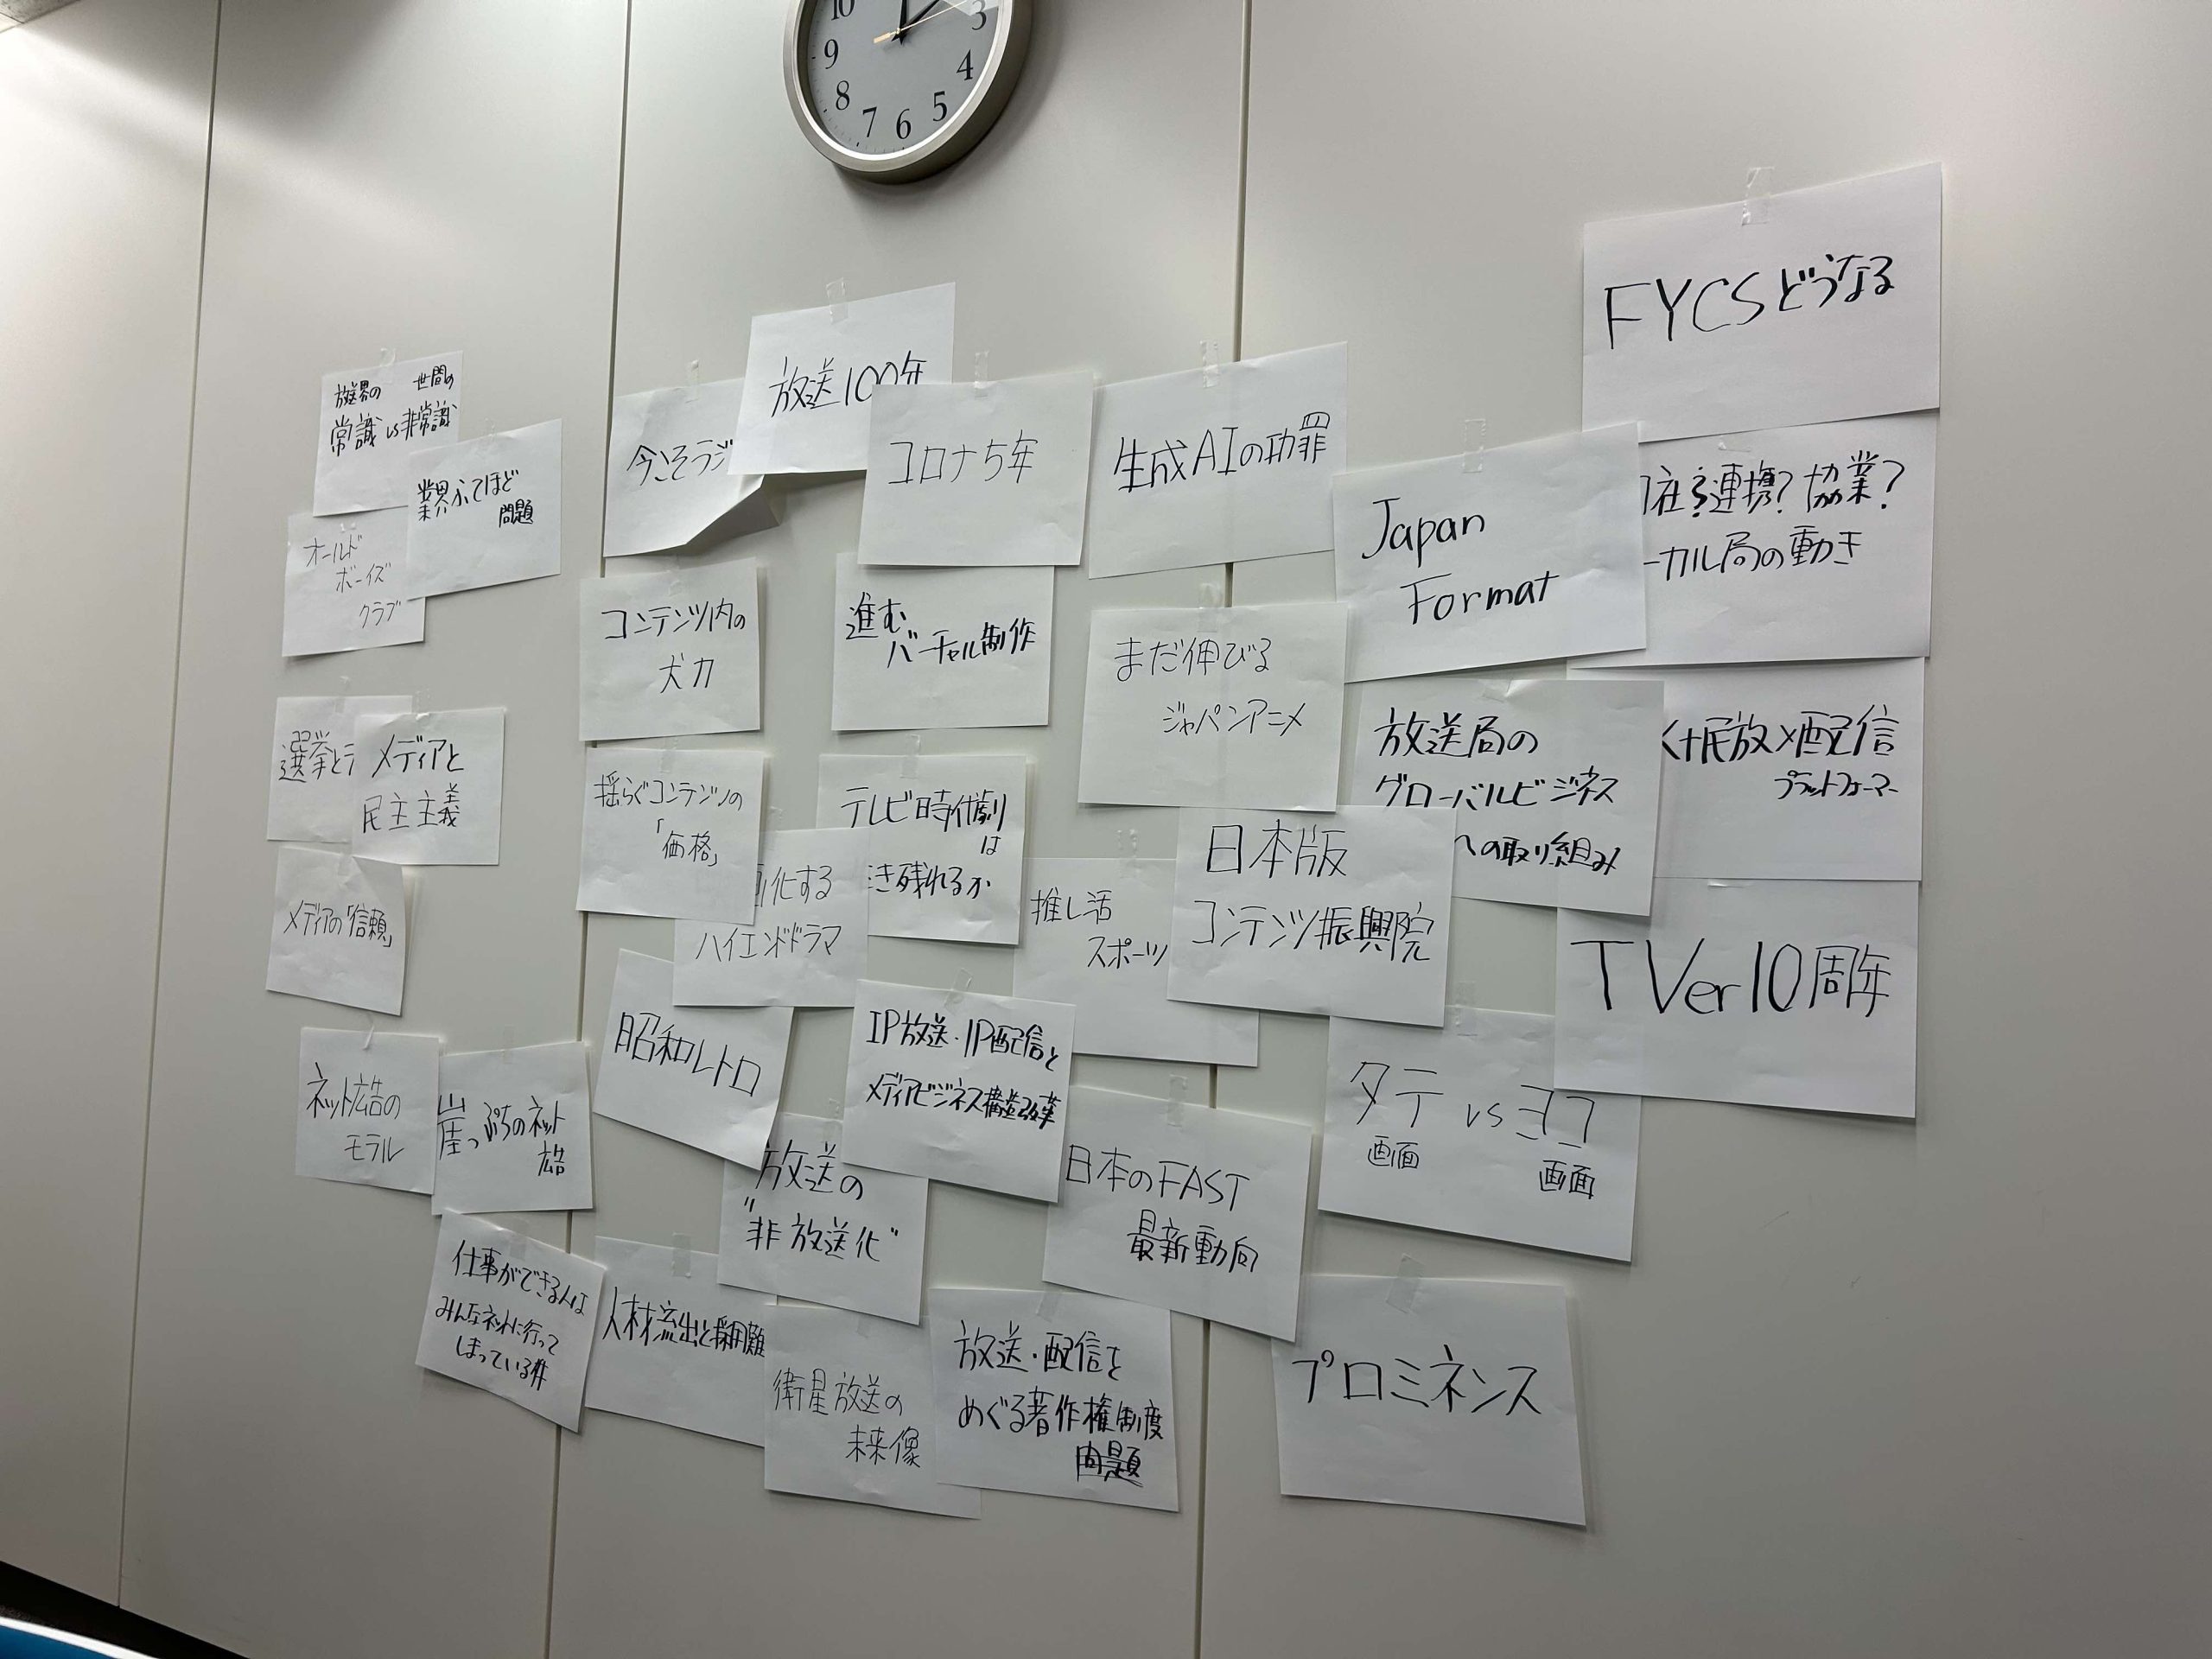 10
9
8
7
6
5
4
3
FYCSどうなる
放送界の 世間の
常識vs非常識
業界ふてほど
問題
オールド
ボーイズ
クラブ
今こそラジ
放送100年
コロナ5年
生成AIの功罪
Japan
Format
社?連携?協業?
ーカル局の動き
コンテンツ内の
犬力
進む
バーチャル制作
まだ伸びる
ジャパンアニメ
放送局の
グローバルビジネス
への取り組み
K+民放×配信
プラットフォーマー
選挙とテ
メディアと
民主主義
揺らぐコンテンツの
「価格」
テレビ時代劇
は
き残れるか
化する
ハイエンドドラマ
推し活
スポーツ
日本版
コンテンツ振興院
TVer10周年
メディアの「信頼」
昭和レトロ
IP放送・IP配信と
メディアビジネス構造改革
タテvsヨコ
画面 画面
ネット広告の
モラル
崖っぷちのネット
広告
放送の
"非放送化"
日本のFAST
最新動向
仕事ができる人は
みんなネットに行って
しまっている件
人材流出と採用難
衛星放送の
未来像
放送・配信を
めぐる著作権制度
問題
プロミネンス